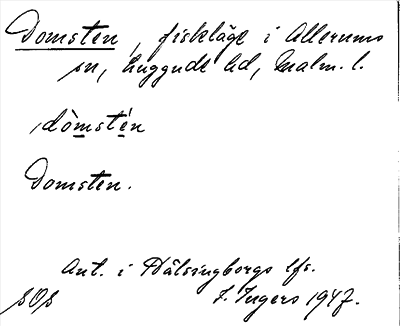 Domsten, fiskläge i Allerums
sn, Luggude hd, Malm. l.
dòmstén
Domsten.
Ant. i Hälsingborgs lfs.
SOS I. Ingers 1947.